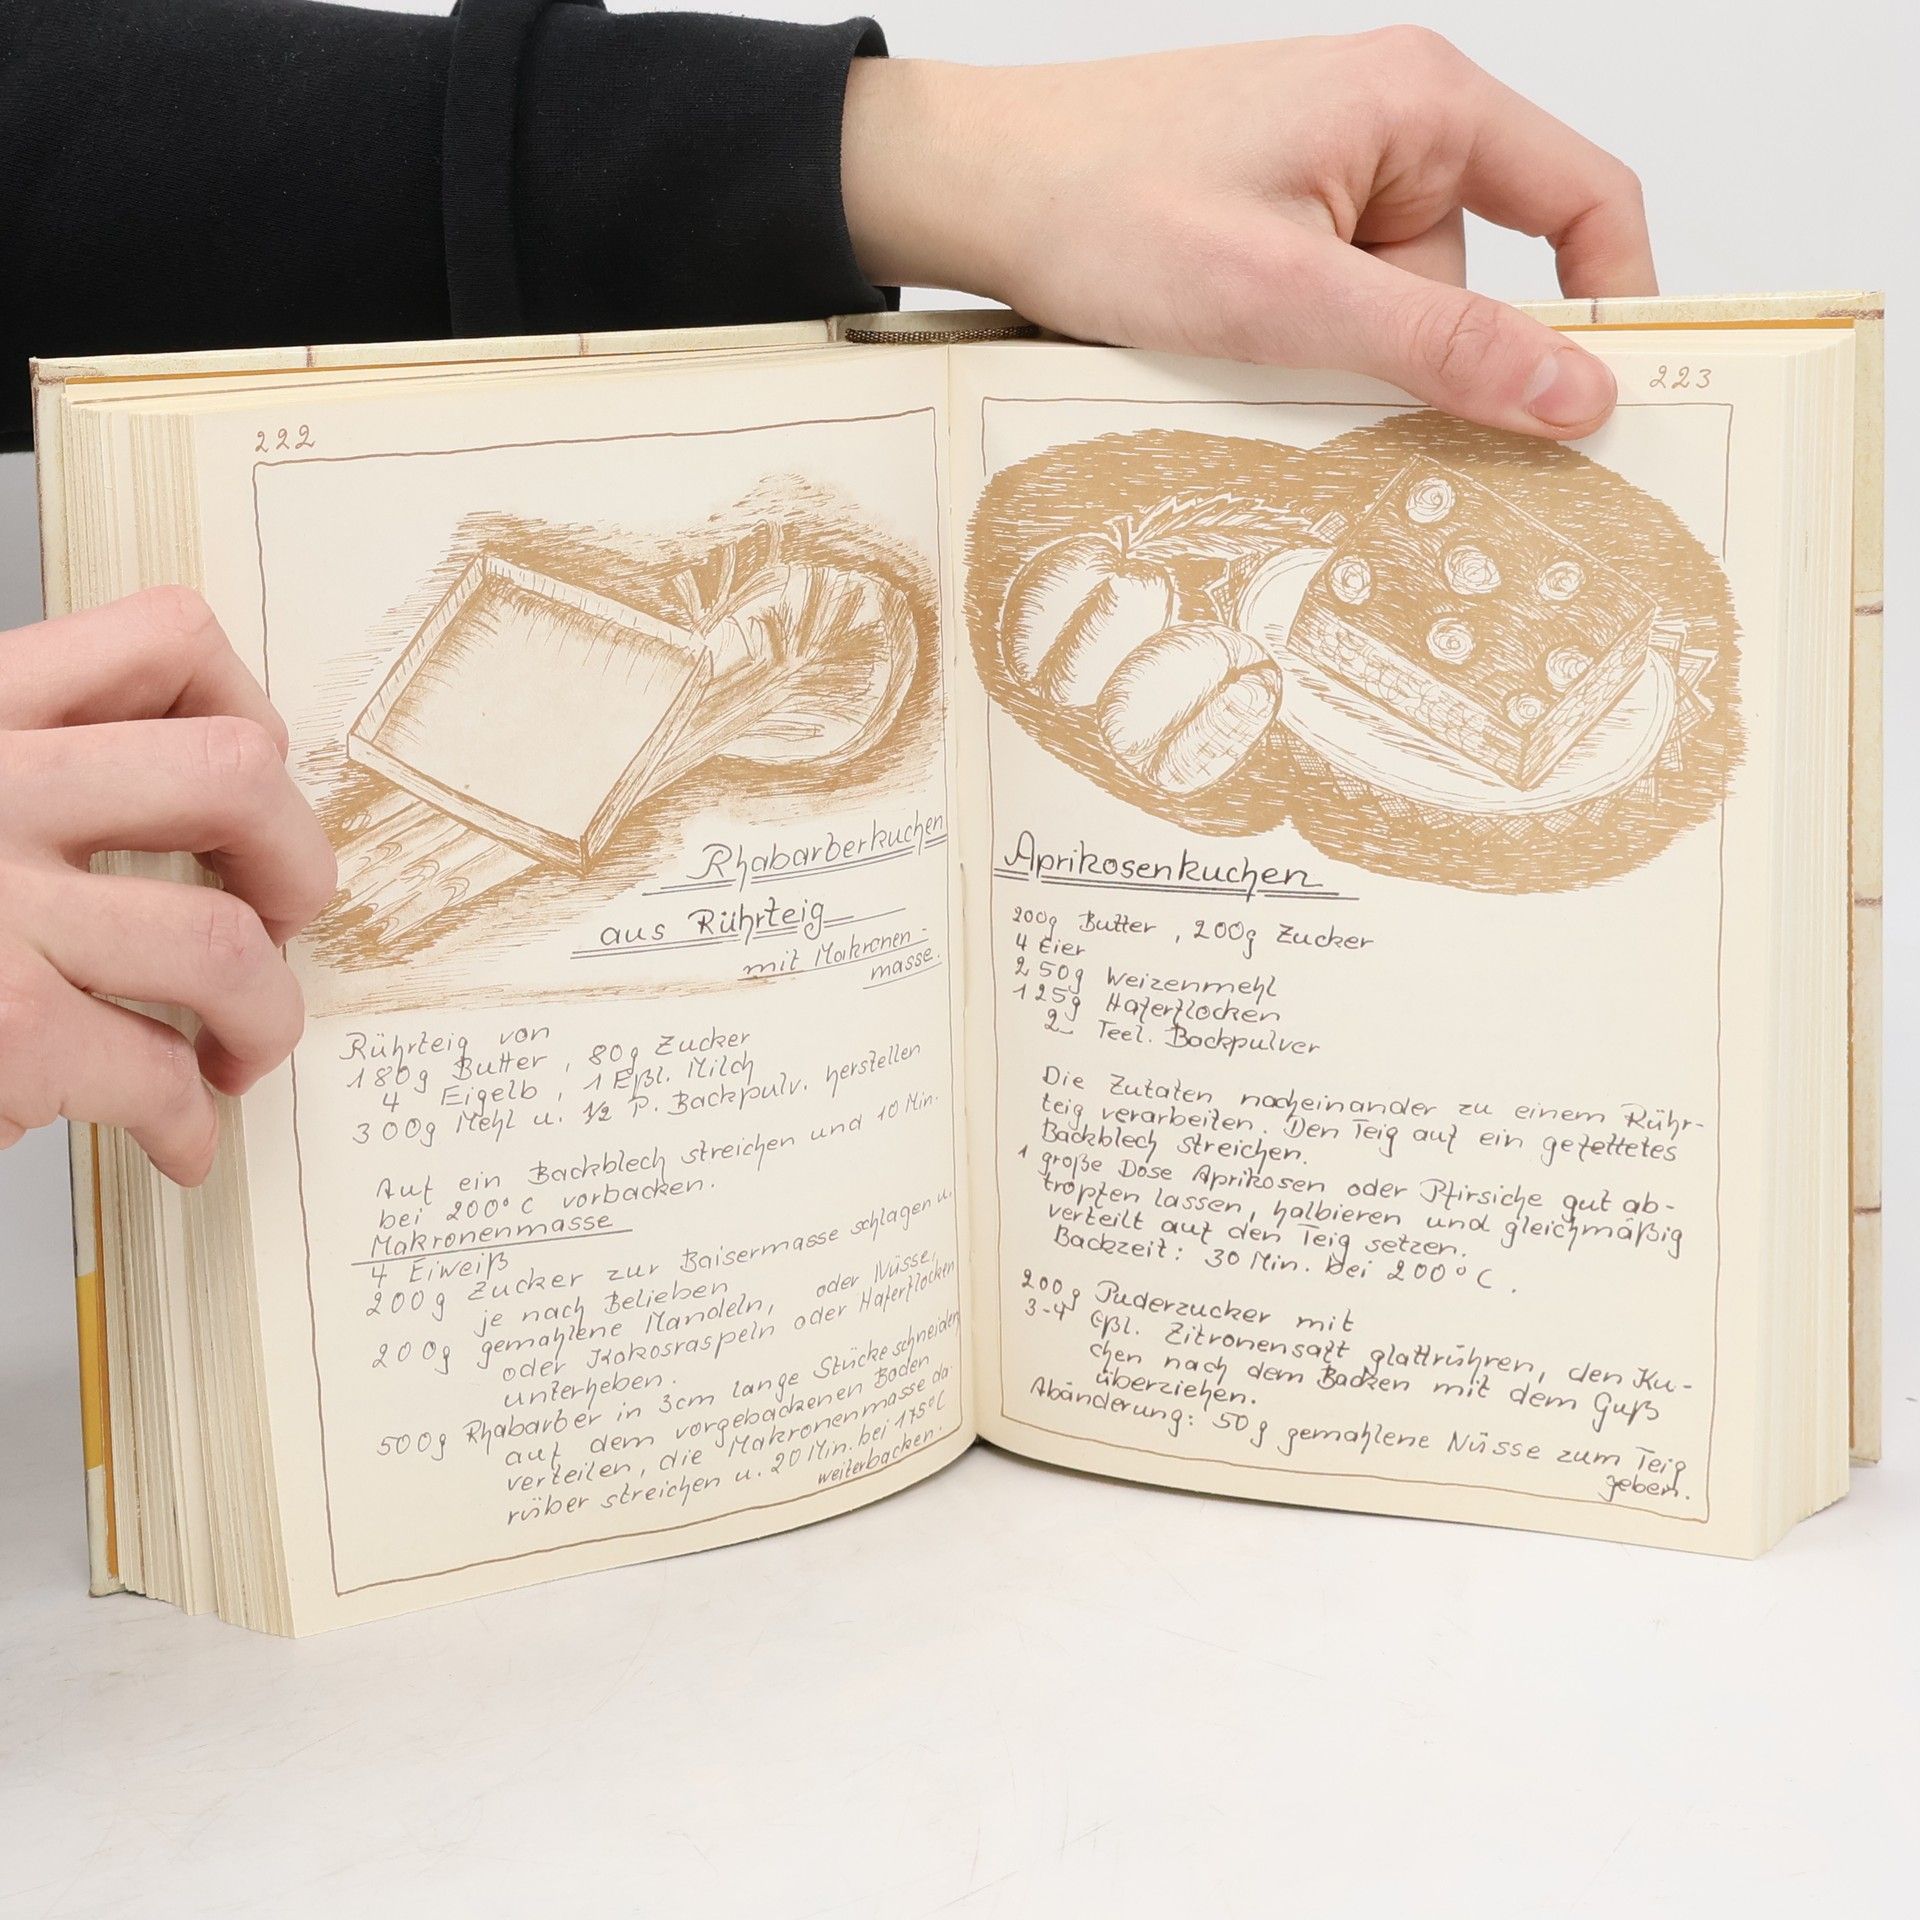 222
Rhabarberkuchen
aus Rührteig
mit Makronen-
masse.
Rührteig von
180g Butter, 80g Zucker
4 Eigelb, 1 Eßl. Milch
300g Mehl u. 1/2 P. Backpulv. herstellen
Auf ein Backblech streichen und 10 Min.
bei 200°C vorbacken.
Makronenmasse
4 Eiweiß
200g Zucker zur Baisermasse schlagen u.
je nach Belieben
200g gemahlene Mandeln, oder Nüsse,
oder Kokosraspeln oder Haferflocken
unterheben.
500g Rhabarber in 3cm lange Stücke schneiden
auf dem vorgebackenen Boden
verteilen, die Makronenmasse da-
rüber streichen u. 20 Min. bei 175°C
weiterbacken.
223
Aprikosenkuchen
200g Butter, 200g Zucker
4 Eier
250g Weizenmehl
125g Haferflocken
2 Teel. Backpulver
Die Zutaten nacheinander zu einem Rühr-
teig verarbeiten. Den Teig auf ein gefettetes
Backblech streichen.
1 große Dose Aprikosen oder Pfirsiche gut ab-
tropfen lassen, halbieren und gleichmäßig
verteilt auf den Teig setzen.
Backzeit: 30 Min. bei 200°C.
200g Puderzucker mit
3-4 Eßl. Zitronensaft glattrühren, den Ku-
chen nach dem Backen mit dem Guß
überziehen.
Abänderung: 50g gemahlene Nüsse zum Teig
geben.